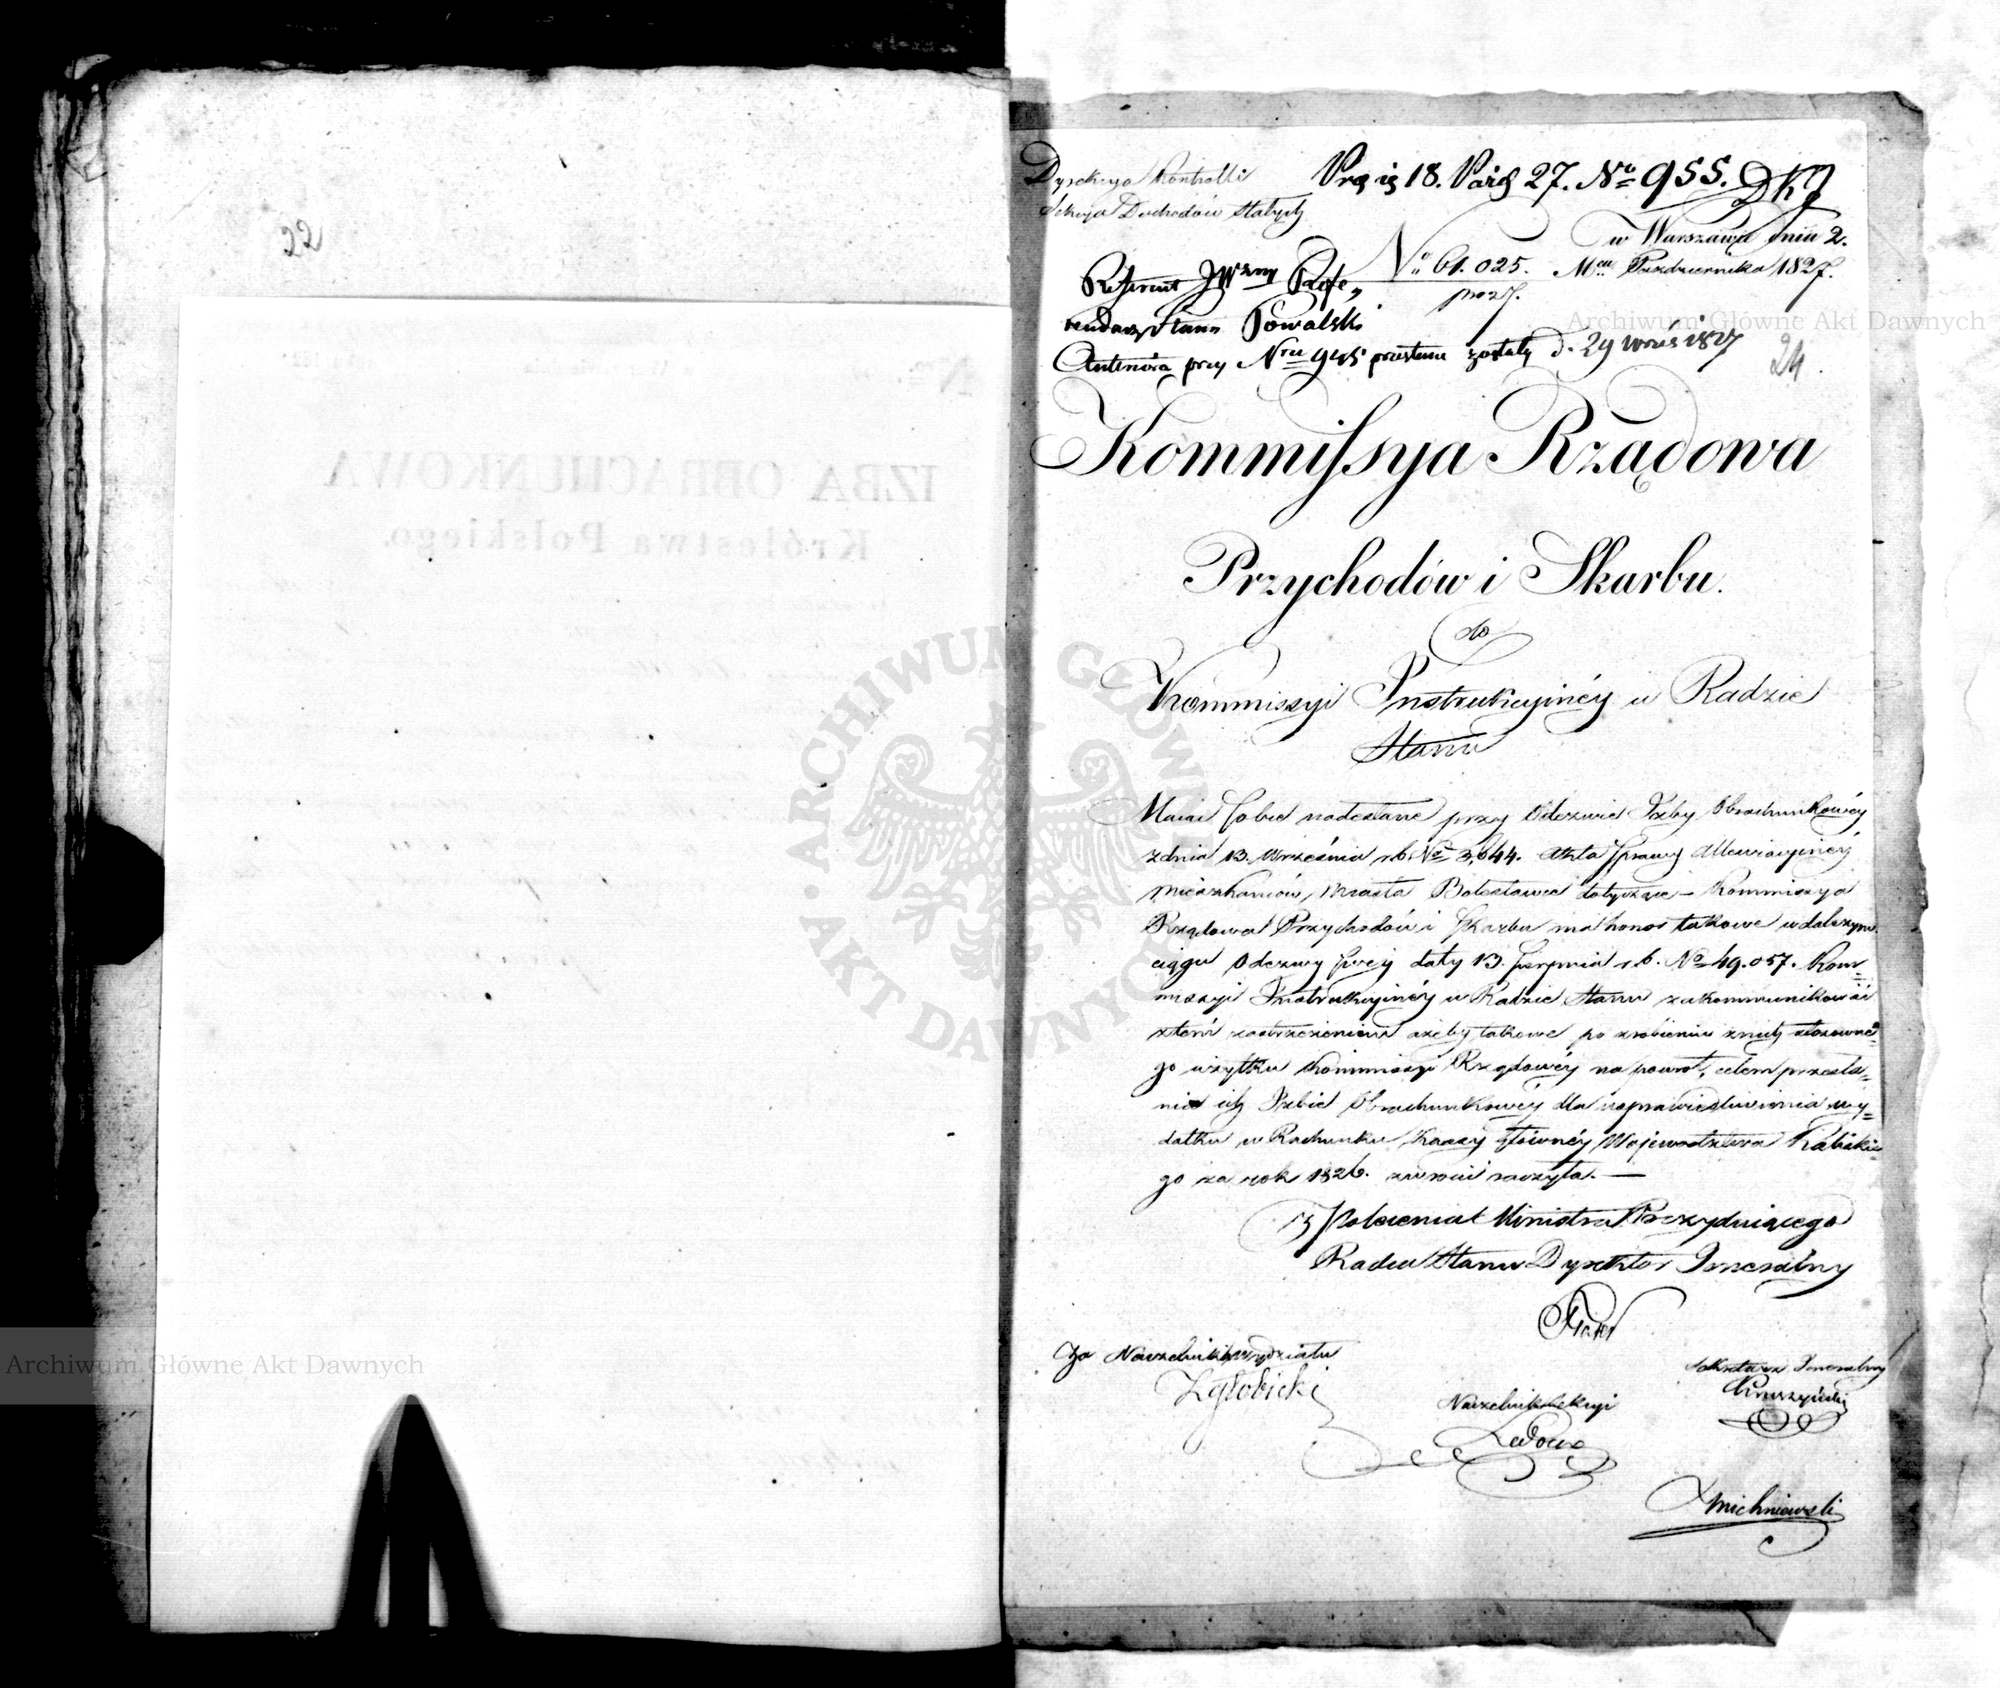 22
IZBA OBRACHUNKOWA
Królestwa Polskiego.
Dyrekcya Kontrolli
Sekcya Dochodów Stałych
18. Paźd 27. No 955. DKJ
w Warszawie dnia 2.
No 61.025. Mca Października 1827.
Referent JWzny Refe„
rendarz Stanu Kowalski
Anteriora przy Nru 945 przesłane zostały d. 29 wrześ 1827
24.
Kommissya Rządowa
Przychodów i Skarbu.
do
Kommissyi Instrukcyinéy w Radzie
Stanu
Maiąc sobie nadesłane przy Odezwie Izby Obrachunkowéy
z dnia 13. Września r.b. No 3,644. Akta sprawy Allewiacyinéy
Mieszkańców Miasta Bolesławca dotyczące – Kommissya
Rządowa Przychodów i Skarbu ma honor takowe w dalszym
ciągu Odezwy swéy daty 13. Sierpnia r.b. No 49.057. Kom=
missyi Instrukcyinéy w Radzie Stanu zakommunikować
z tém zastrzeżeniem ażeby takowe po zrobieniu z nich stosowne=
go użytku Kommissyi Rządowéy na powrót, celem przesła=
nia ich Izbie Obrachunkowéy dla usprawiedliwienia wy=
datku w Rachunku Kassy Głównéy Województwa Kaliskie=
go za rok 1826. zwrócić raczyła. —
z Polecenia Ministra Prezyduiącego
Radca Stanu Dyrektor Jeneralny
Za Naczelnika Wydziału
Zgłobicki
Sekretarz Jeneralny
Naczelnik Sekcyi
Zmichniewski
Archiwum Główne Akt Dawnych
Archiwum Główne Akt Dawnych
ARCHIWUM GŁÓWNE AKT DAWNYCH